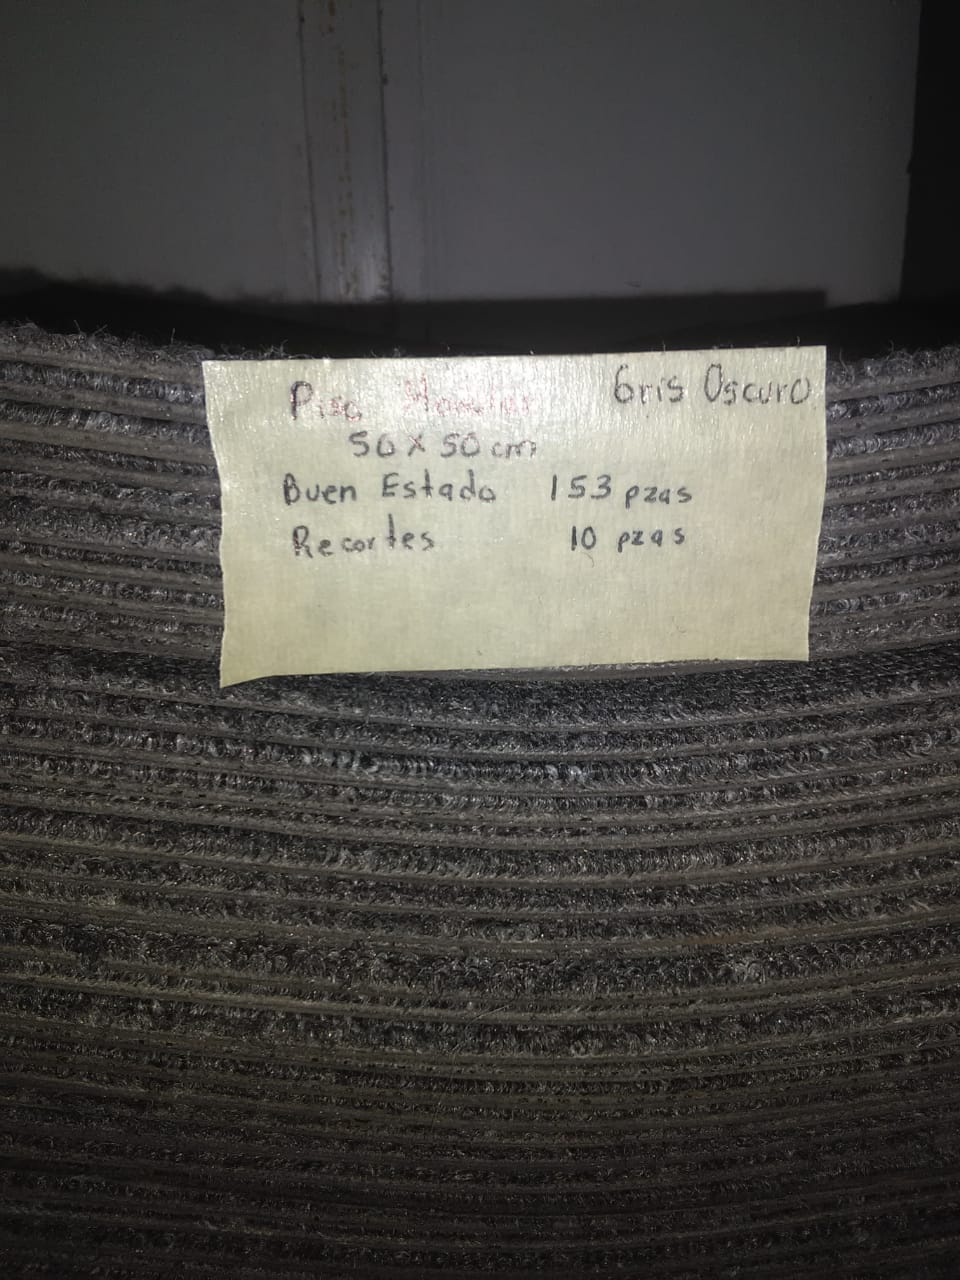 Piso Gris Oscuro
50 x 50 cm
Buen Estado 153 pzas
Recortes 10 pzas